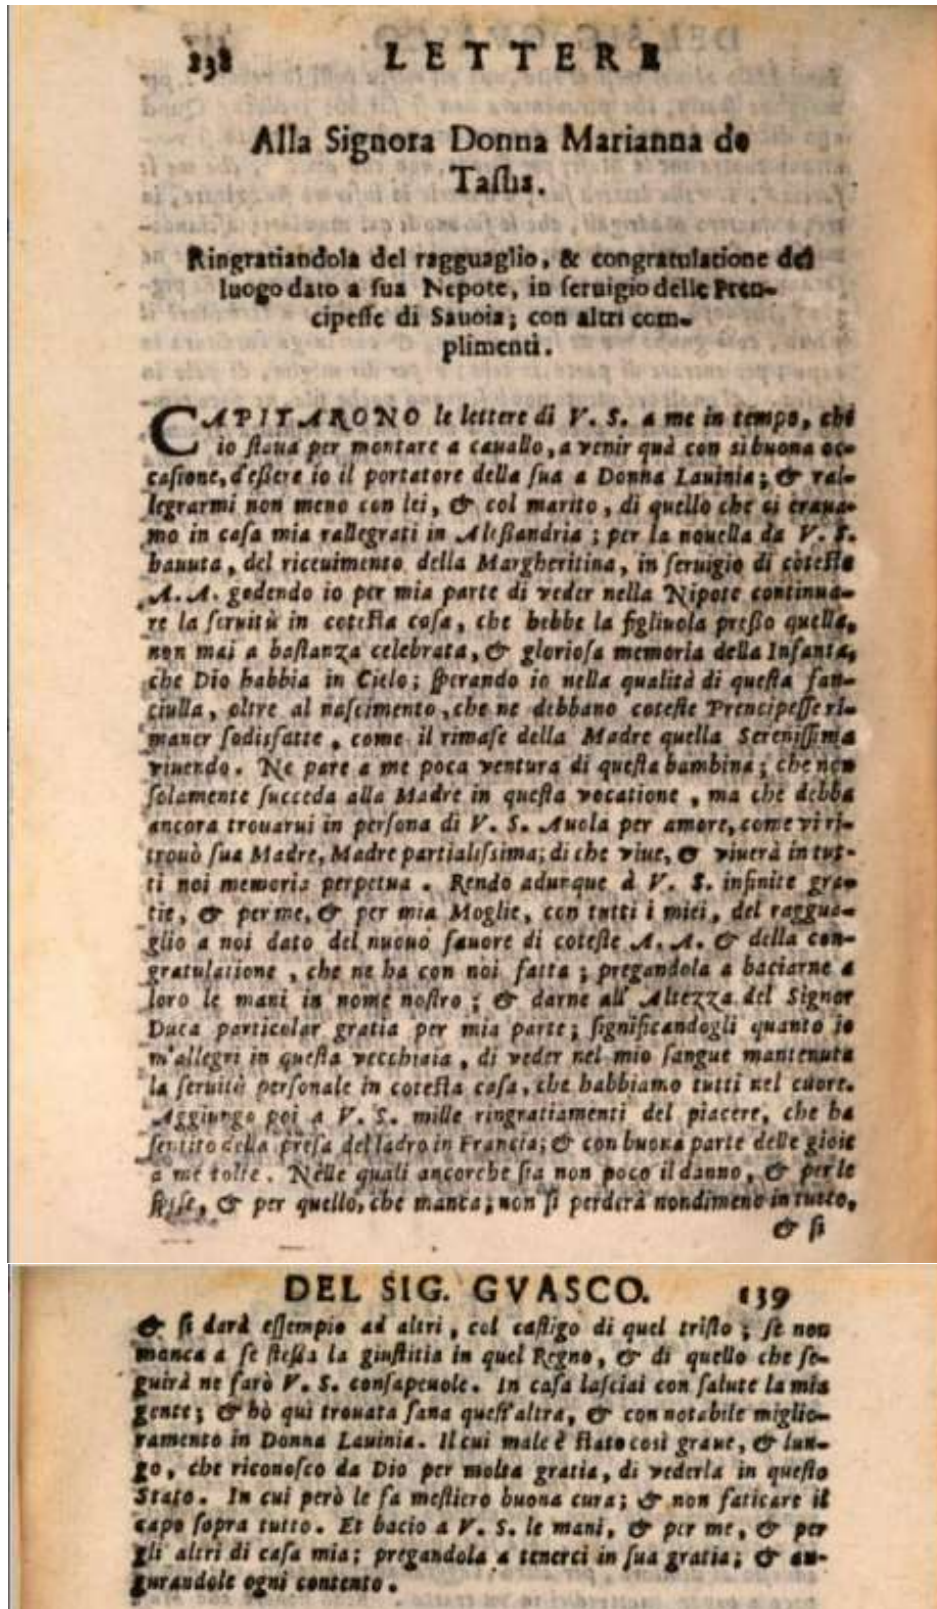 138 LETTERE
Alla Signora Donna Marianna de
Tassis.
Ringratiandola del ragguaglio, & congratulatione del
luogo dato a sua Nepote, in seruigio delle Pren-
cipesse di Sauoia; con altri com-
plimenti.
CAPITARONO le lettere di V. S. a me in tempo, che
io staua per montare a cauallo, a venir quà con sì buona oc-
casione, d'essere io il portatore della sua a Donna Lauinia; & ral-
legrarmi non meno con lei, & col marito, di quello che ci eraua-
mo in casa mia rallegrati in Alessandria; per la nouella da V. S.
hauuta, del riceuimento della Margheritina, in seruigio di coteste
A. A. godendo io per mia parte di veder nella Nipote continua-
re la seruitù in cotesta casa, che hebbe la figliuola presso quella,
non mai a bastanza celebrata, & gloriosa memoria della Infanta,
che Dio habbia in Cielo; sperando io nella qualità di questa fan-
ciulla, oltre al nascimento, che ne debbano coteste Prencipesse ri-
maner sodisfatte, come il rimase della Madre quella Serenissima
viuendo. Ne pare a me poca ventura di questa bambina; che non
solamente succeda alla Madre in questa vocatione, ma che debba
ancora trouarui in persona di V. S. Auola per amore, come vi ri-
trouò sua Madre, Madre partialissima; di che viue, & viuerà in tut-
ti noi memoria perpetua. Rendo adunque à V. S. infinite gra-
tie, & per me, & per mia Moglie, con tutti i miei, del raggua-
glio a noi dato del nuouo fauore di coteste A. A. & della con-
gratulatione, che ne ha con noi fatta; pregandola a baciarne a
loro le mani in nome nostro; & darne all' Altezza del Signor
Duca particolar gratia per mia parte; significandogli quanto io
m'allegri in questa vecchiaia, di veder nel mio sangue mantenuta
la seruitù personale in cotesta casa, che habbiamo tutti nel cuore.
Aggiungo poi a V. S. mille ringratiamenti del piacere, che ha
sentito della presa del ladro in Francia; & con buona parte delle gioie
a me tolte. Nelle quali ancorche sia non poco il danno, & per le
spese, & per quello, che manca; non si perderà nondimeno in tutto,
& si
DEL SIG. GVASCO. 139
& si darà essempio ad altri, col castigo di quel tristo; se non
manca a se stessa la giustitia in quel Regno, & di quello che se-
guirà ne farò V. S. consapeuole. In casa lasciai con salute la mia
gente; & hò quì trouata sana quest'altra, & con notabile miglio-
ramento in Donna Lauinia. Il cui male è stato così graue, & lun-
go, che riconosco da Dio per molta gratia, di vederla in questo
Stato. In cui però le fa mestiero buona cura; & non faticare il
capo sopra tutto. Et bacio a V. S. le mani, & per me, & per
gli altri di casa mia; pregandola a tenerci in sua gratia; & au-
gurandole ogni contento.